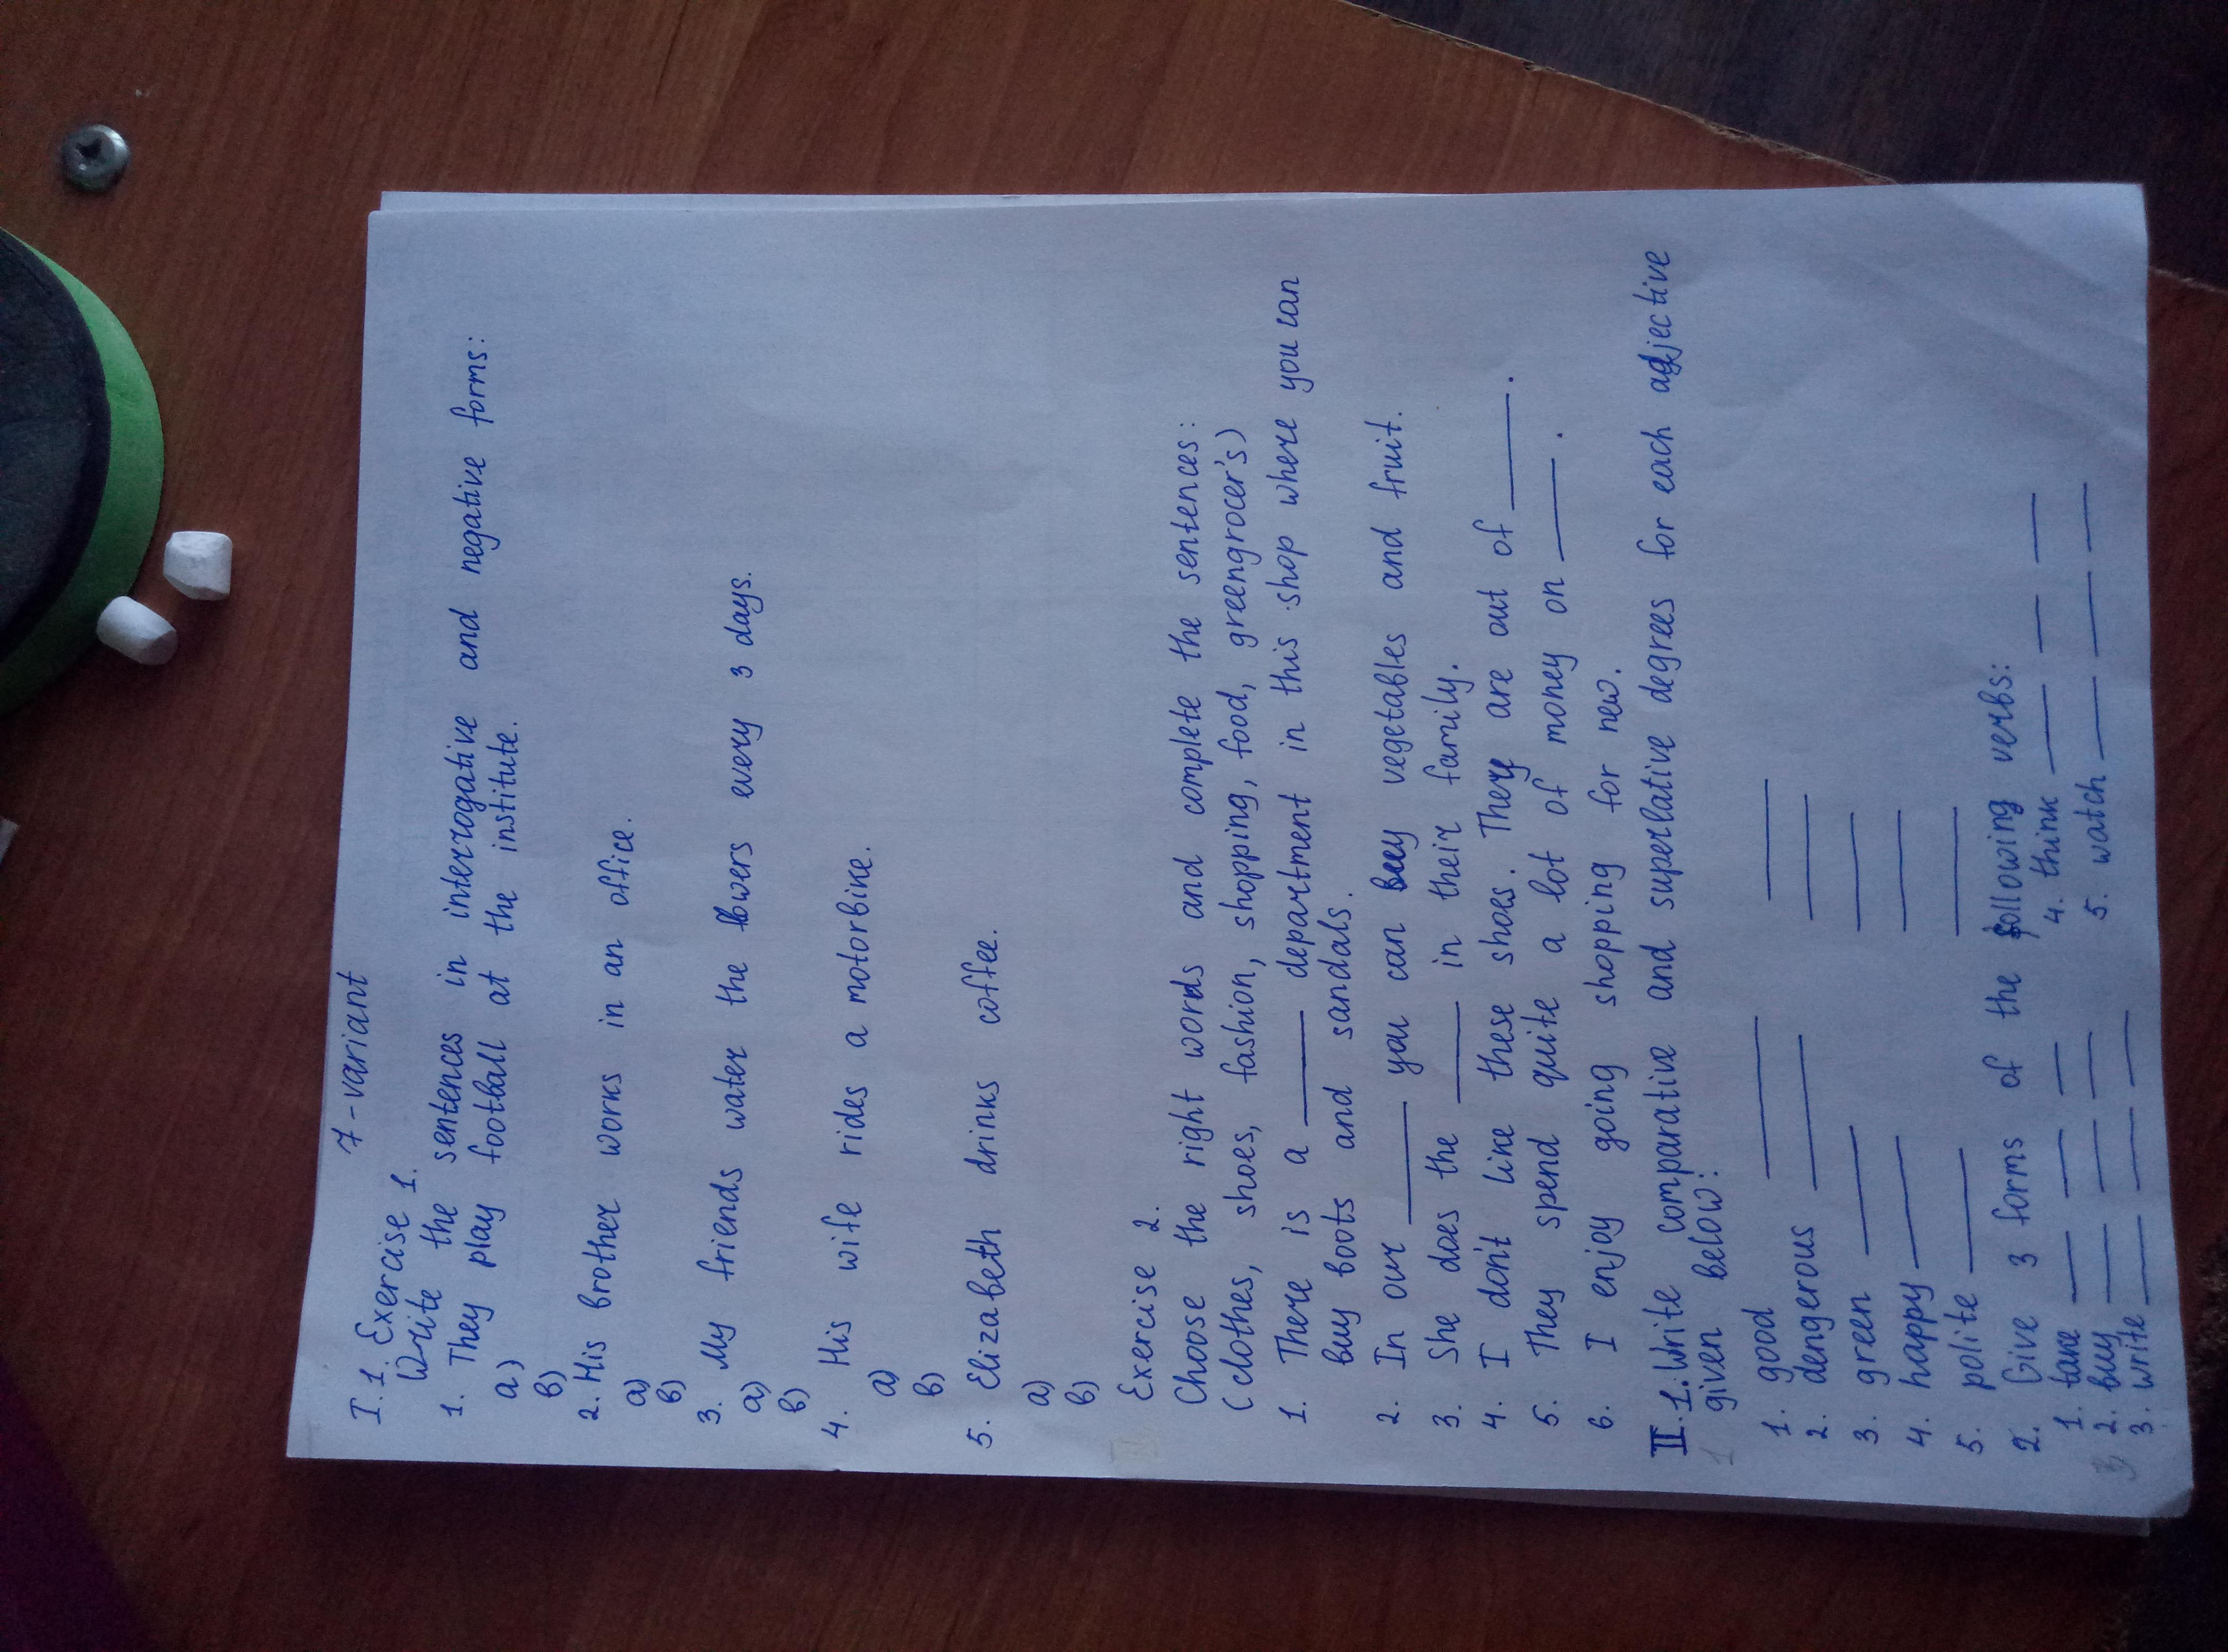 7-variant
I. 1. Exercise 1.
Write the sentences in interrogative and negative forms:
1. They play football at the institute.
a)
b)
2. His brother works in an office.
a)
b)
3. My friends water the flowers every 3 days.
a)
b)
4. His wife rides a motorbike.
a)
b)
5. Elizabeth drinks coffee.
a)
b)
Exercise 2.
Choose the right words and complete the sentences:
(clothes, shoes, fashion, shopping, food, greengrocer's)
1. There is a ____ department in this shop where you can
buy boots and sandals.
2. In our ____ you can buy vegetables and fruit.
3. She does the ____ in their family.
4. I don't like these shoes. They are out of ____.
5. They spend quite a lot of money on ____.
6. I enjoy going shopping for new.
II. 1. Write comparative and superlative degrees for each adjective
given below:
1. good ____ ____
2. dengerous ____ ____
3. green ____ ____
4. happy ____ ____
5. polite ____ ____
2. Give 3 forms of the following verbs:
1. take ____ ____ ____ 4. think ____ ____ ____
2. buy ____ ____ ____ 5. watch ____ ____ ____
3. write ____ ____ ____